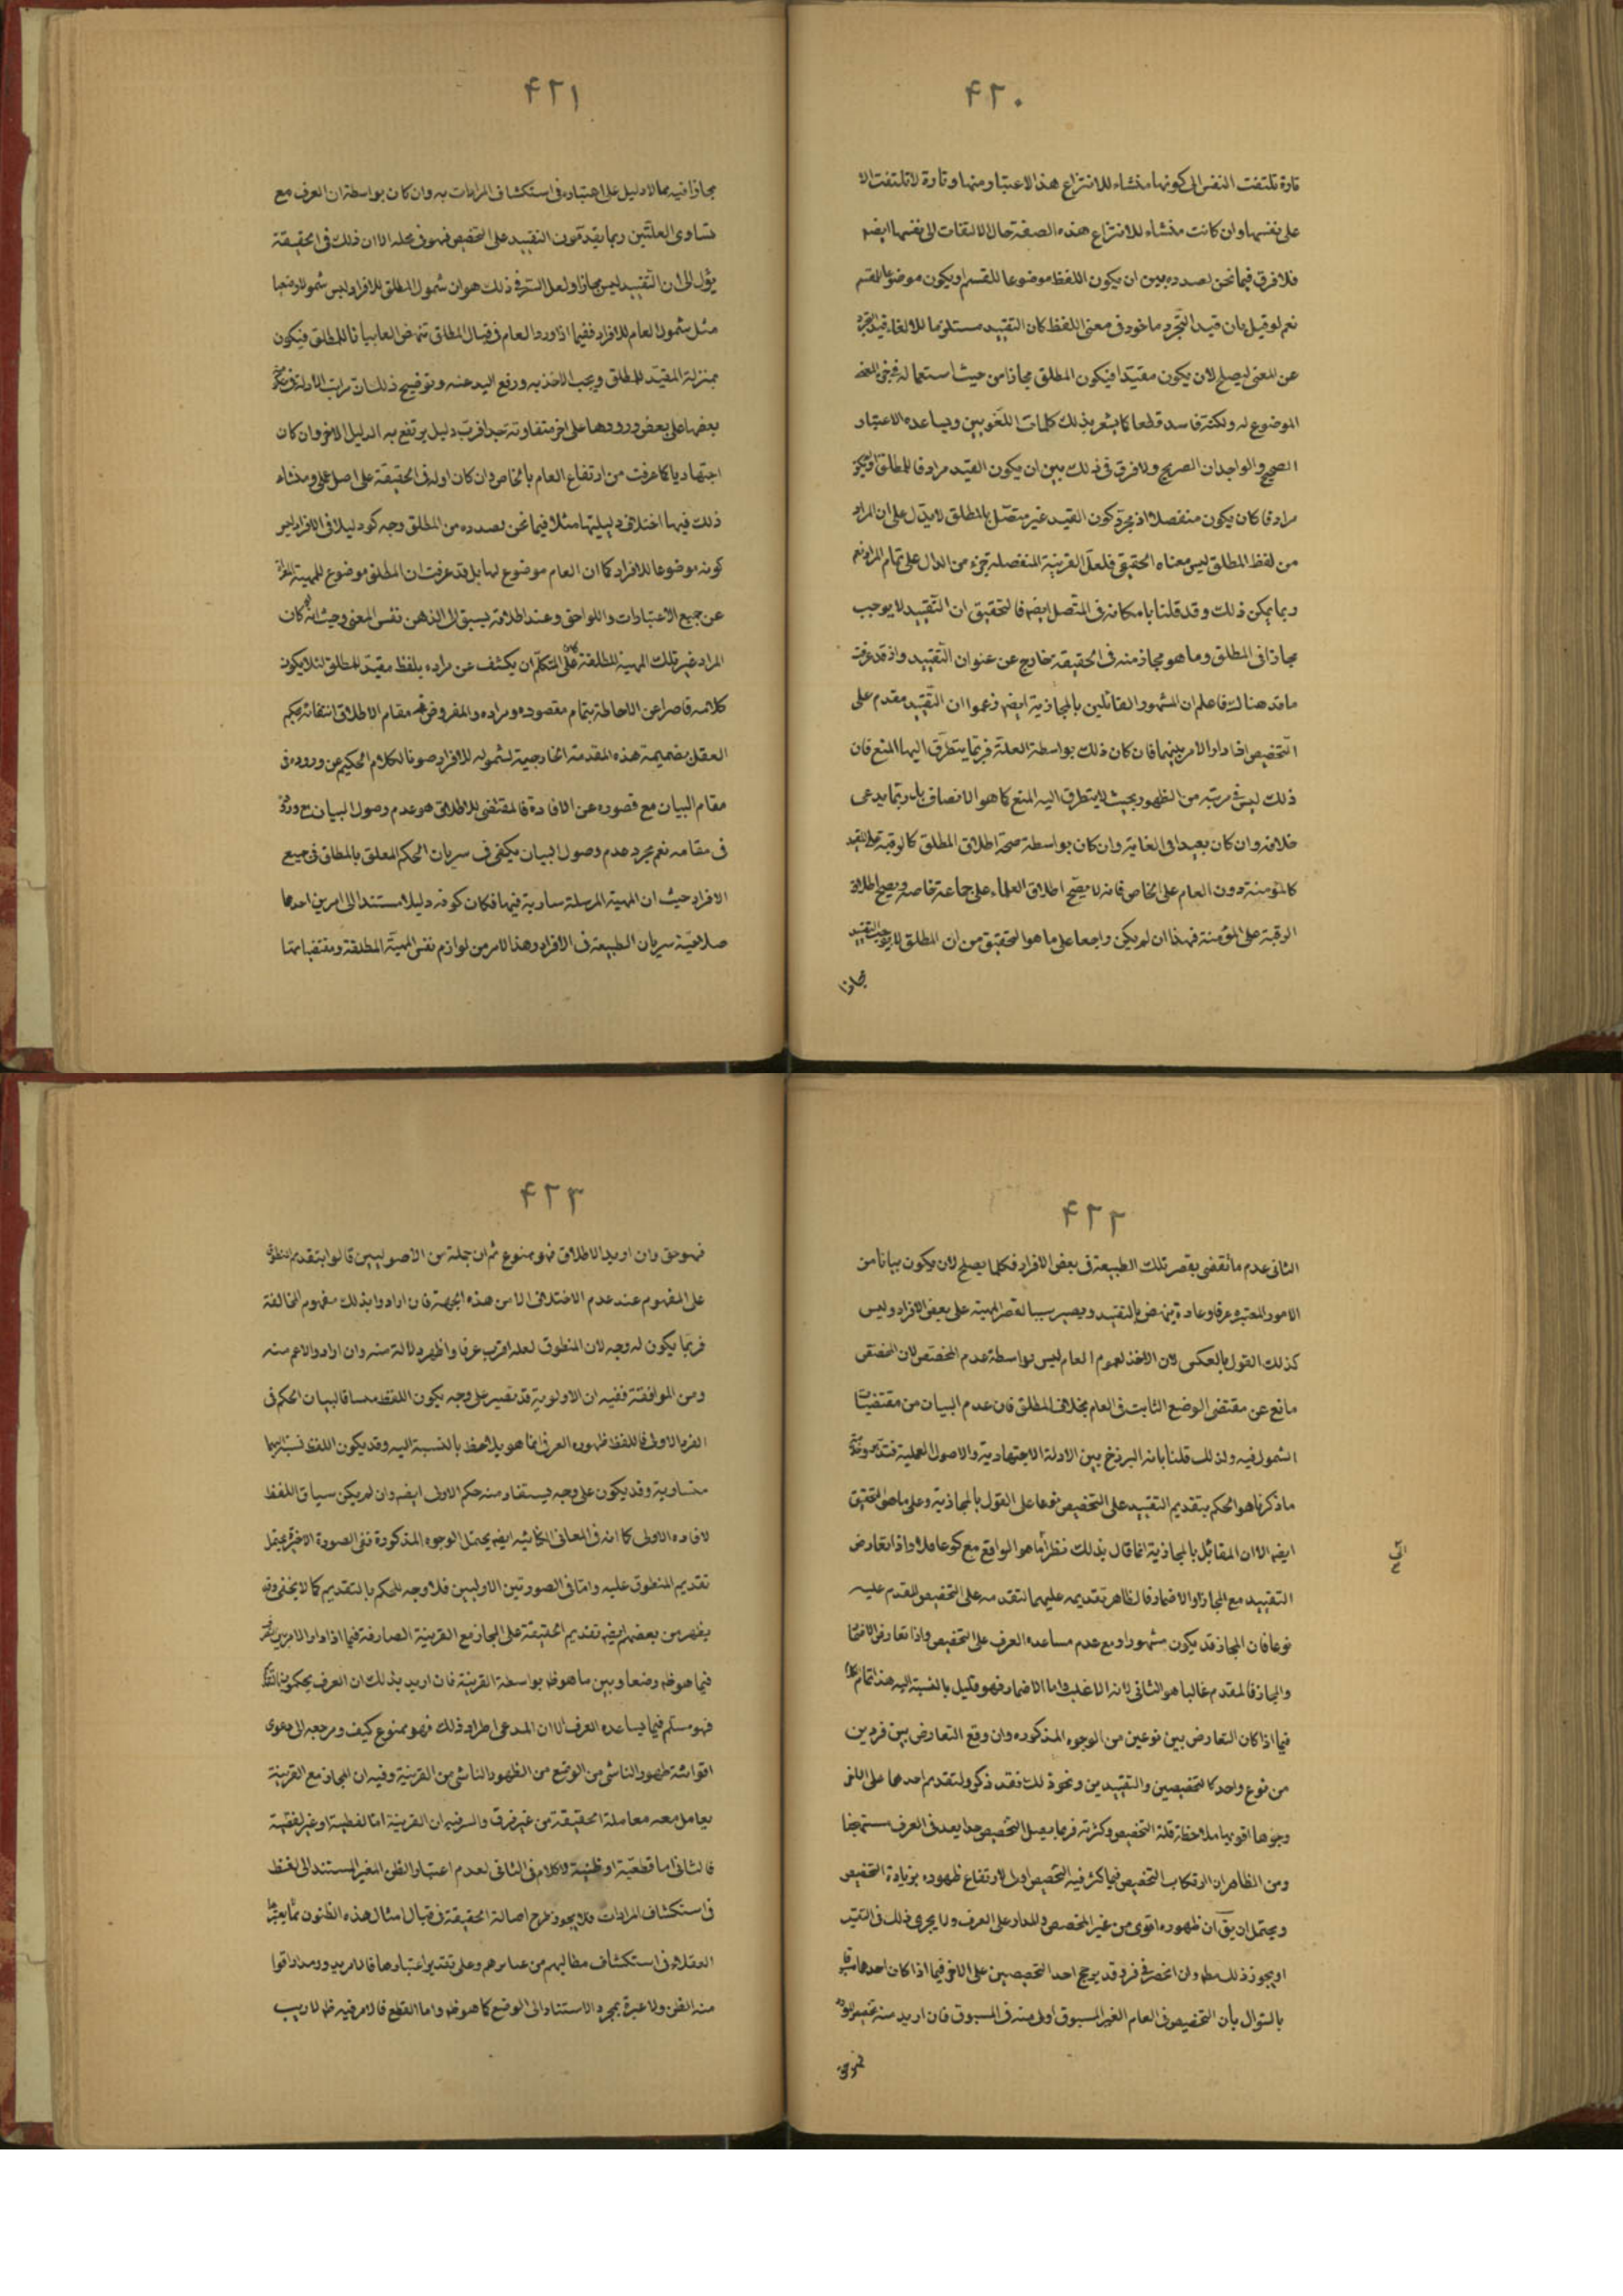 ۴۲۰
تارة تلتفت النفس الى كونها منشاء للانتزاع هذا الاعتبار منها وتارة لا تلتفت الا
على نفسها وان كانت منشاء للانتزاع هذه الصفة حال الالتفات الى نفسها ايضا
فلا فرق فيما نحن بصدده بين ان يكون اللفظ موضوعا للقسم او يكون موضوعا للمقسم
نعم لو قيل بان قيد التجرد ماخوذ فى معنى اللفظ كان التقييد مستلزما للالغاء قيد التجرد
عن المعنى ليصلح لان يكون مقيدا فيكون المطلق مجازا من حيث استعماله فى
الموضوع له ولكنه فاسد قطعا كما يشعر بذلك كلمات اللغويين ويساعده الاعتبار
الصحيح والواجدان الصريح ولا فرق فى ذلك بين ان يكون القيد مرادفا للمطلق
مرادفا كان يكون منفصلا اذ مجرد كون القيد غير متصل بالمطلق لا يدل على ان المراد
من لفظ المطلق ليس معناه الحقيقى فلعل القرينة المنفصلة جزء من الدال على تمام المراد نعم
ربما يمكن ذلك وقد قلنا بامكانه فى المتصل ايضا فالتحقيق ان التقييد لا يوجب
مجازا فى المطلق وما هو مجاز منه فى الحقيقة خارج عن عنوان التقييد واذ قد عرفت
ما قدمناه فاعلم ان المشهور القائلين بالمجازية ايضا زعموا ان التقييد مقدم على
التخصيص اذا دار الامر بينهما فان كان ذلك بواسطة الغلبة فربما يتطرق اليها المنع فان
ذلك ليس فى مرتبة من الظهور بحيث لا يتطرق اليه المنع كما هو الانصاف بل ربما يدعى
خلافه وان كان بعيدا فى الغاية وان كان بواسطة صحة اطلاق المطلق كالرقبة على المقيد
كالمؤمنة دون العام على الخاص فانه لا يصح اطلاق العلماء على جماعة خاصة ويصح اطلاق
الرقبة على المؤمنة فهذا ان لم يكن راجعا على ما هو التحقيق من ان المطلق لا يوجب التقييد
مجازا
۴۲۱
مجازا فيه مما لا دليل على اعتباره فى استكشاف المرادات به وان كان بواسطة ان العرف مع
تساوى العلتين ربما يقدمون التقييد على التخصيص فهو فى محله الا ان ذلك فى الحقيقة
يؤل الى ان التقييد ليس مجازا ولعل السر فى ذلك هو ان شمول المطلق للافراد ليس شمولا وضعيا
مثل شمول العام للافراد ففيما اذا ورد العام فى قبال المطلق تنهض العام بيانا للمطلق فيكون
بمنزلة المقيد للمطلق ويجب الاخذ به ورفع اليد عنه وتوضيح ذلك ان مراتب الادلة
بعضها على بعض ورودها على اخر متفاوتة جدا فرب دليل يرتفع به الدليل الاخر وان كان
اجتهاديا كما عرفت من ارتفاع العام بالخاص وان كان اوله فى الحقيقة على اصل عملى ومنشاء
ذلك فيها اختلاف دليليتها مثلا فيما نحن بصدده من المطلق وجه كونه دليلا فى الافراد ليس
كونه موضوعا للافراد كما ان العام موضوع لها بل قد عرفت ان المطلق موضوع للمهية المعراة
عن جميع الاعتبارات واللواحق وعند اطلاقه يسبق الى الذهن نفس المعنى وحيث انه لو كان
المراد غير تلك المهية المطلقة كان على المتكلم ان يكشف عن مراده بلفظ مقيد للمطلق لئلا يكون
كلامه قاصرا عن الاحاطة بتمام مقصوده ومراده والمفروض فى مقام الاطلاق انتفائه فيحكم
العقل بضميمة هذه المقدمة الخارجية لشموله للافراد صونا لكلام الحكيم عن وروده فى
مقام البيان مع قصوره عن الافادة فالمقتضى للاطلاق هو عدم وصول البيان مع وروده
فى مقامه نعم مجرد عدم وصول البيان يكفى فى سريان الحكم المعلق بالمطلق فى جميع
الافراد حيث ان المهية المرسلة سارية فيها فكان كونه دليلا مستندا الى امرين احدهما
صلاحية سريان الطبيعة فى الافراد وهذا الامر من لوازم نفس المهية المطلقة ومقتضياتها
۴۲۲
الثانى عدم ما يقضى بقصر تلك الطبيعة فى بعض الافراد فكلما يصلح لان يكون بيانا من
الامور المعتبرة عرفا وعادة ينهض بالتقييد ويصير سببا لقصر المهية على بعض الافراد وليس
كذلك القول بالعكس لان الاخذ بعموم العام ليس بواسطة عدم المخصص لان المخصص
مانع عن مقتضى الوضع الثابت فى العام بخلاف المطلق فان عدم البيان من مقتضيات
الشمول فيه ولذلك قلنا بانه البرزخ بين الادلة الاجتهادية والاصول العملية
ما ذكرنا هو الحكم بتقديم التقييد على التخصيص نوعا على القول بالمجازية وعلى ما هو التحقيق
ايضا الا ان القائل بالمجازية انما قال بذلك نظرا لما هو الواقع مع كونه غافلا واذا تعارض
التقييد مع المجاز او الاضمار فالظاهر تقديمه عليهما لتقدمه على التخصيص المقدم عليه
نوعا فان المجاز قد يكون مشهورا ومع عدم مساعدة العرف على التخصيص واذا تعارض الاضمار
والمجاز فالمقدم غالبا هو الثانى لانه الاغلب واما الاضمار فهو قليل بالنسبة اليه هذا تمام
فيما اذا كان التعارض بين نوعين من الوجوه المذكورة وان وقع التعارض بين فردين
من نوع واحد كالتخصيصين والتقييدين ونحو ذلك فقد ذكروا لتقدم احدهما على الاخر
وجوها اقويها ملاحظة قلة التخصيص وكثرته فربما يصل التخصيص حدا يعد فى العرف مستهجنا
ومن الظاهر ان ارتكاب التخصيص فيما كثر فيه التخصيص اولى لارتفاع ظهوره بزيادة التخصيص
ويحتمل ان يق ان ظهوره اقوى من غير المخصص والمدار على العرف ولا يجرى ذلك فى التقييد
او يجوز ذلك مط ولن انحصر فى فرد قد يرجح احد التخصيصين على الاخر فيما اذا كان احدهما مسبوقا
بالسؤال بأن التخصيص فى العام الغير المسبوق اولى منه فى المسبوق فان اريد منه تخصيص المورد
۴۲۳
فهو حق وان اريد الاطلاق فهو ممنوع ثم ان جملة من الاصوليين قالوا بتقديم المنطوق
على المفهوم عند عدم الاختلاف الا من هذه الجهة فان ارادوا بذلك مفهوم المخالفة
فربما يكون له وجه لان المنطوق لعله اقرب عرفا واظهر دلالة منه وان ارادوا الاعم منه
ومن الموافقة ففيه ان الاولوية قد تصير على وجه يكون اللفظ مساقا لبيان الحكم فى
الفرد الاولى فاللفظ ظهوره العرفى انما هو يلاحظ بالنسبة اليه وقد يكون اللفظ نسبته اليهما
متساوية وقد يكون على وجه يستفاد منه حكم الاولى ايضا وان لم يكن سياق اللفظ
لافادة الاولى كما انه فى المعانى الكنائيه ايضا يحتمل الوجوه المذكورة ففى الصورة الاخيرة يحتمل
تقديم المنطوق عليه واما فى الصورتين الاوليين فلا وجه للحكم بالتقديم كما لا يخفى وقد
يظهر من بعضهم ايضا تقديم الحقيقة على المجاز مع القرينة الصارفة فيما اذا دار الامر بين
فيما هو ظ وضعا وبين ما هو ظ بواسطة القرينة فان اريد بذلك ان العرف يحكمون
فهو مسلم فيما يساعده العرف الا ان المدعى اطراد ذلك فهو ممنوع كيف ومرجعه الى دعوى
اقوائية ظهور الناشى من الوضع من الظهور الناشى من القرينة وفيه ان المجاز مع القرينة
يعامل معه معاملة الحقيقة من غير فرق والسر فيه ان القرينة اما لفظية او غير لفظية
فالثانى اما قطعية او ظنية لا كلام فى الثانى لعدم اعتبار الظن الغير المستند الى لفظ
فى استكشاف المرادات فلا يجوز طرح اصالة الحقيقة فى قبال امثال هذه الظنون مما يعتبرها
العقلاء فى استكشاف مطالبهم من عباراتهم وعلى تقدير اعتبارها فالامر يدور مدار اقوا
منه الظن ولا عبرة بمجرد الاستناد الى الوضع كما هو ظ واما القطع فالامر فيه ظ لا ريب